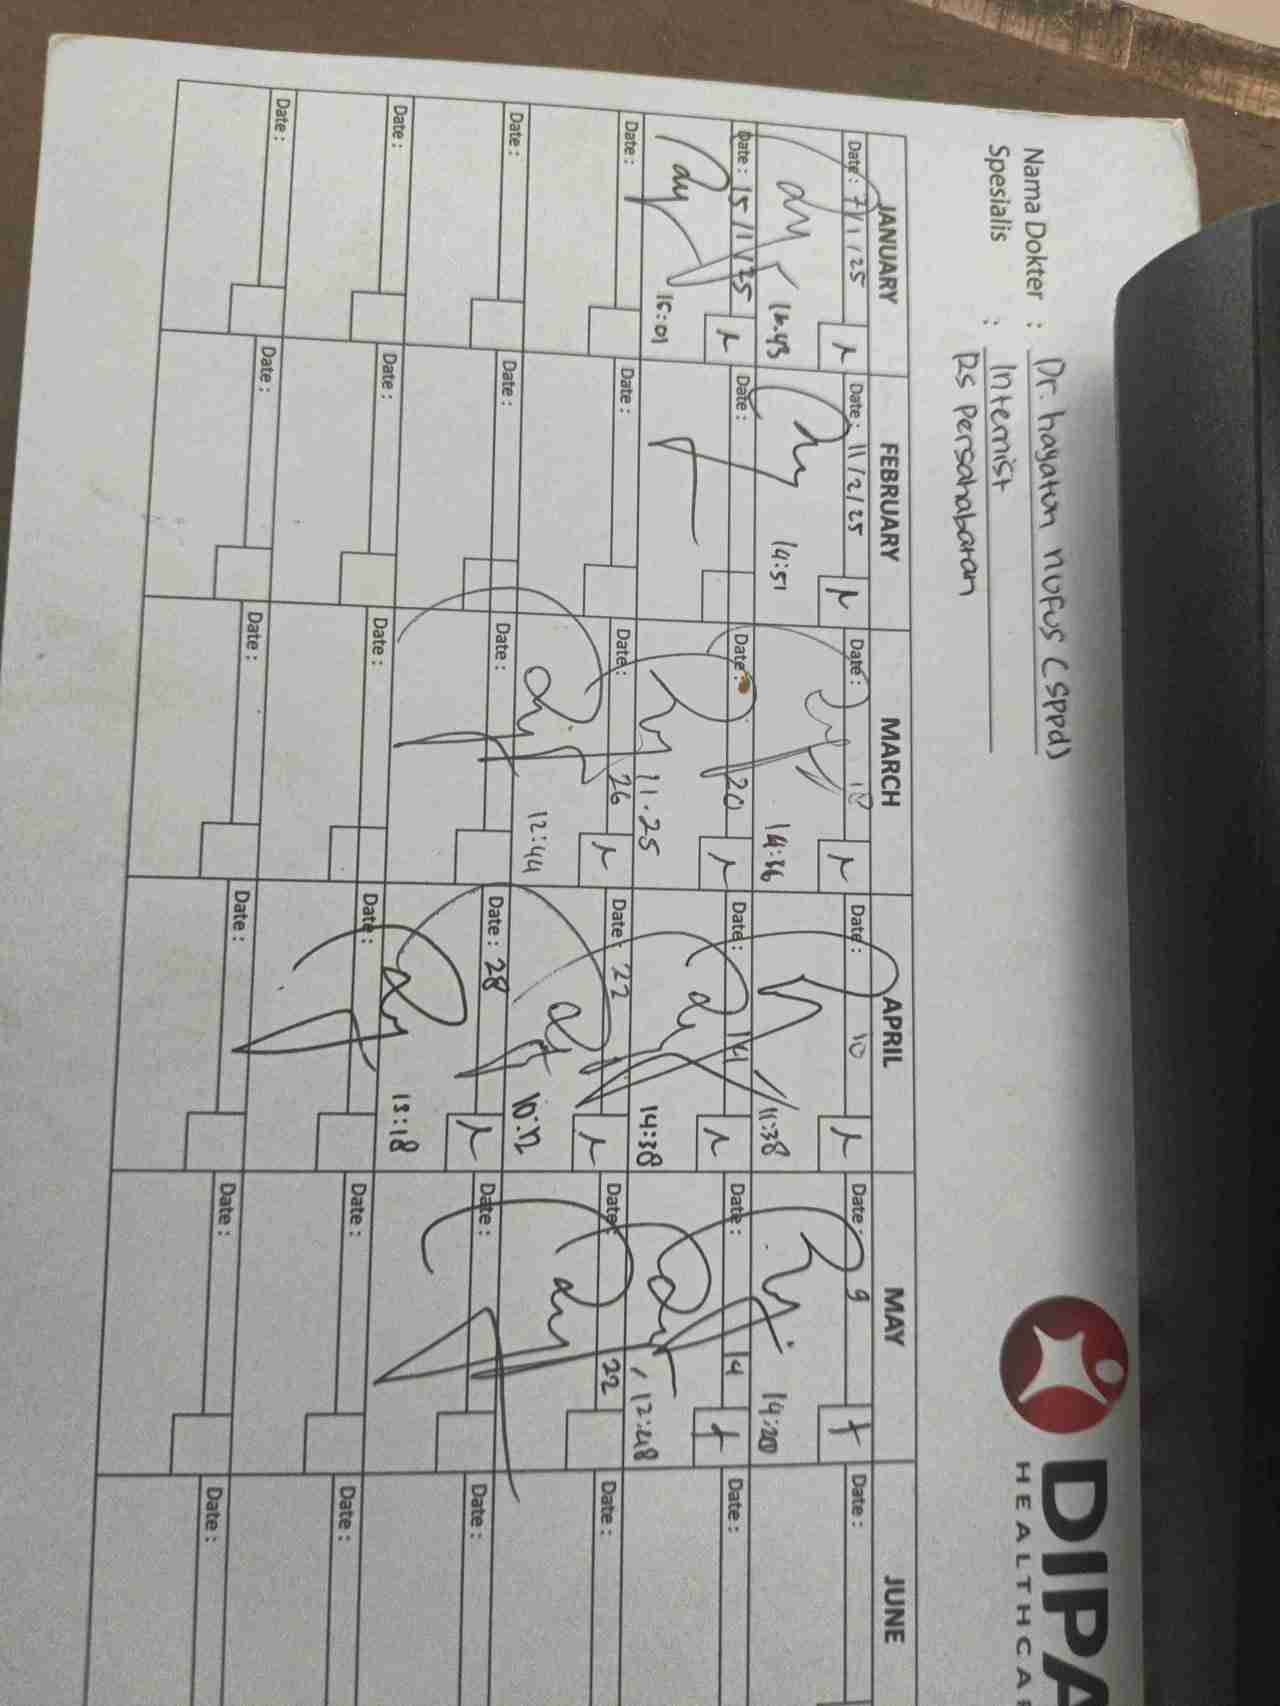 Nama Dokter : Dr. hayatun nufus (sppd)
Spesialis : Internist
RS Persahabatan
DIPA
HEALTHCA
JANUARY FEBRUARY MARCH APRIL MAY JUNE
Date : 7/1/25 Date : 11/2/25 Date : 18 Date : 10 Date : 9 Date :
14:51 14:36 11:38 14:20
Date : 15/1/25 Date : Date : 20 Date : 14 Date : 14 Date :
15:01 11.25 14:38 12:48
Date : Date : Date : 26 Date : 22 Date : 22 Date :
12:44 10:12
Date : Date : Date : Date : 28 Date : Date :
13:18
Date : Date : Date : Date : Date : Date :
Date : Date : Date : Date : Date : Date :